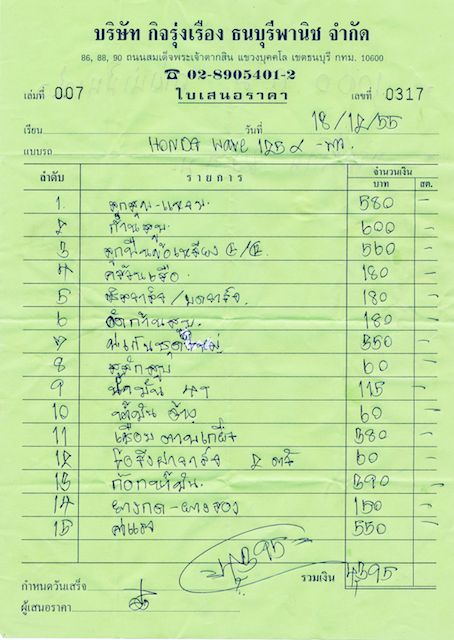 บริษัท กิจรุ่งเรือง ธนบุรีพานิช จำกัด
86, 88, 90 ถนนสมเด็จพระเจ้าตากสิน แขวงบุคคโล เขตธนบุรี กทม. 10600
☎ 02-8905401-2
เล่มที่ 007 ใบเสนอราคา เลขที่ 0317
เรียน วันที่ 18/12/55
แบบรถ HONDA WAVE 125
ลำดับ รายการ จำนวนเงิน
บาท สต.
1 ลูกสูบ-แหวน 580 -
2 ก้านสูบ 600 -
3 ลูกปืนข้อเหวี่ยง 560 -
4 คว้านเสื้อ 180 -
5 180 -
6 อัดก้านสูบ 180 -
7 ปะเก็นชุดใหญ่ 350 -
8 60 -
9 น้ำมัน 4T 115 -
10 ล้าง 60 -
11 380 -
12 2 ตัว 60 -
13 390 -
14 150 -
15 ค่าแรง 550 -
4,395
กำหนดวันเสร็จ รวมเงิน 4,395
ผู้เสนอราคา